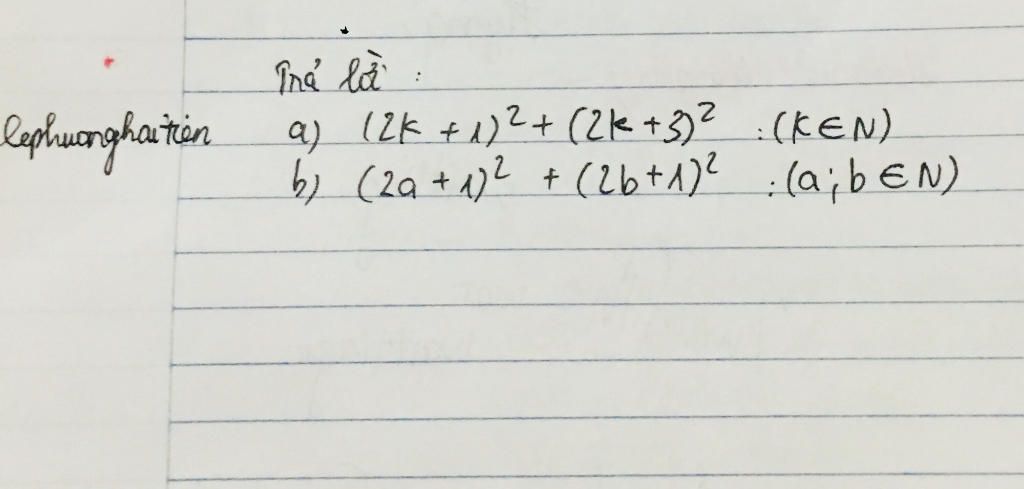 Trả lời :
lephuonghaitien a) (2k + 1)² + (2k + 3)² : (k ∈ N)
b) (2a + 1)² + (2b + 1)² : (a ; b ∈ N)